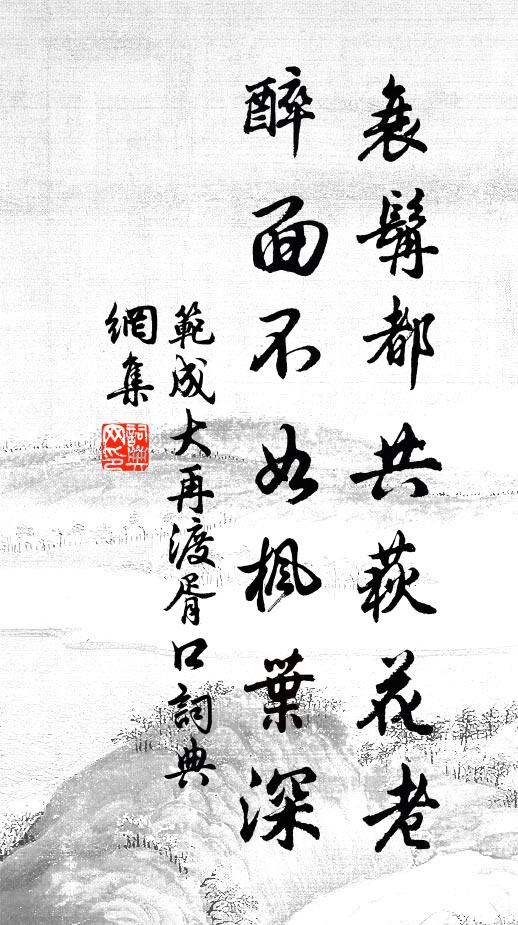 衰鬢都共萩花老
醉面不如楓葉深
範成大再渡胥口詞典
網集